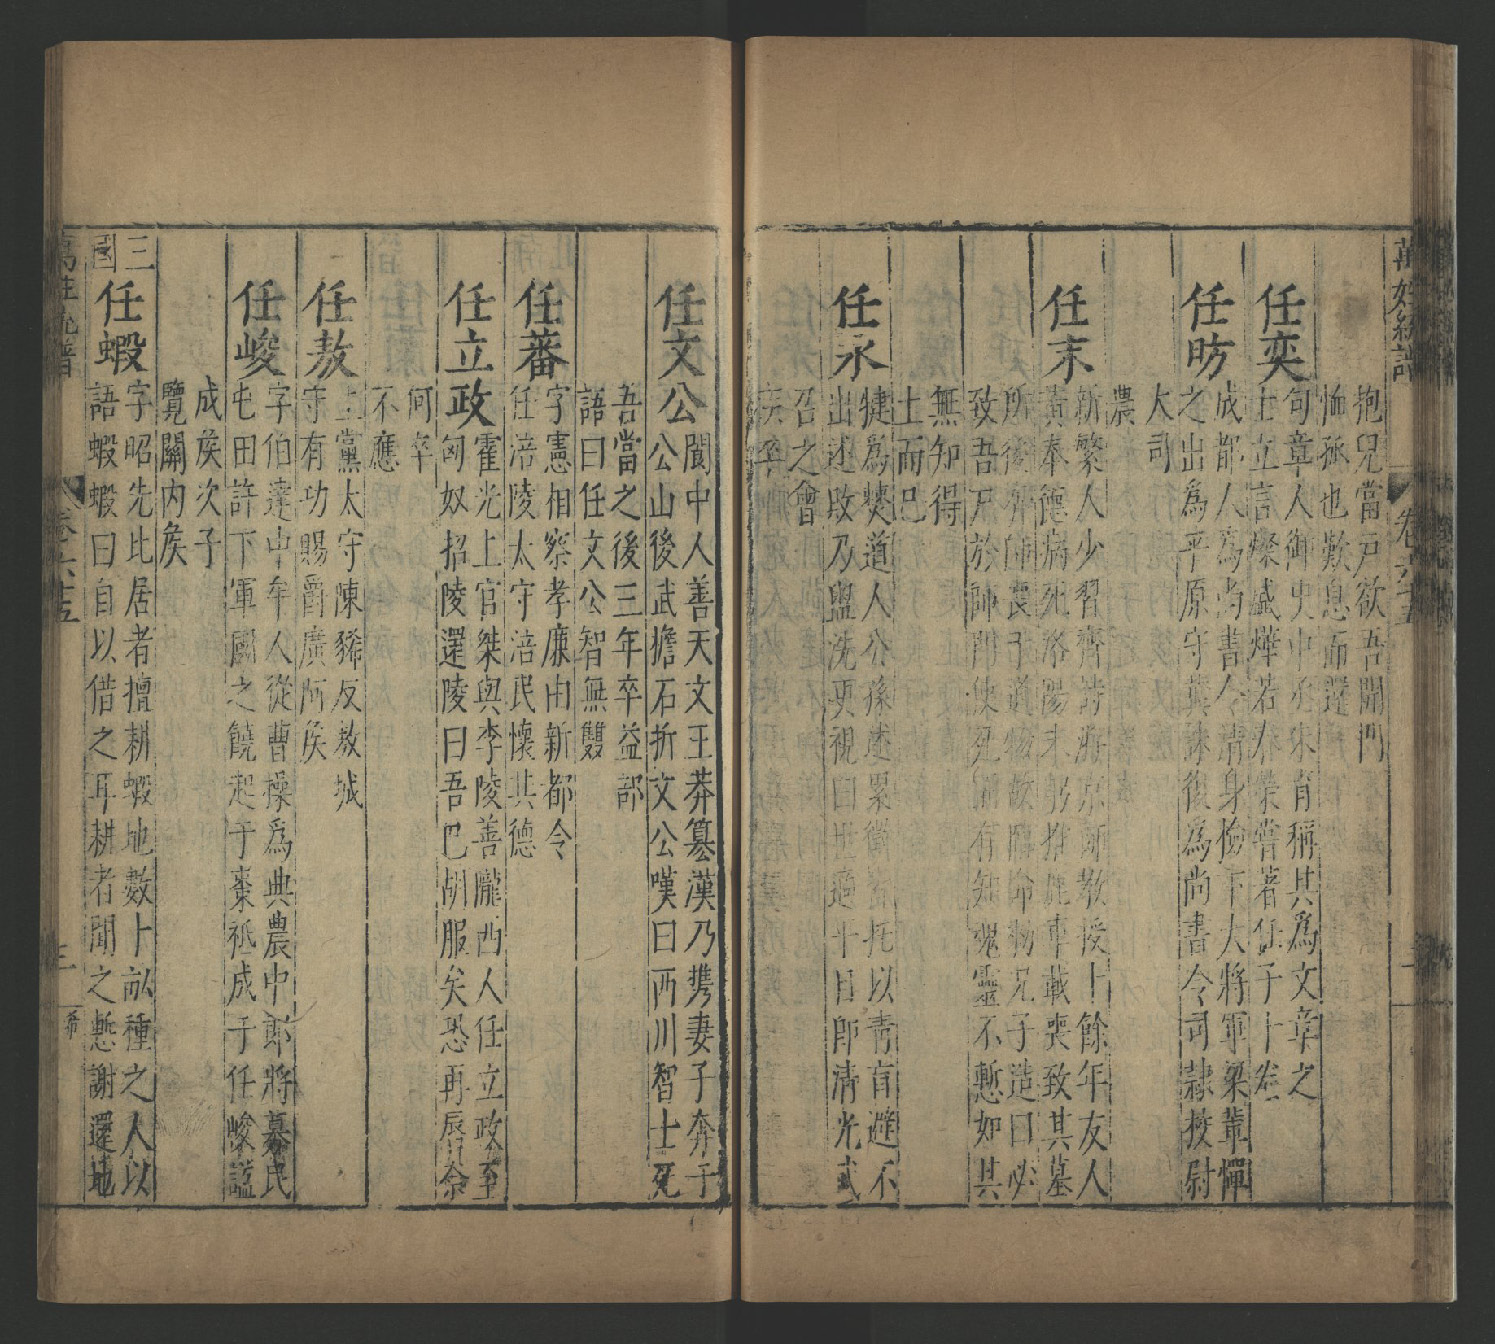 萬姓統譜
卷六十五
抱兄當戶欲吾開門
恤孤也歎息而還
任奕
句章人御史中丞朱育稱其為文章之
士立言粲盛燁若春榮嘗著任子十卷
任昉
成都人為尚書令清身檢下大將軍梁冀憚
之出為平原守冀誅復為尚書令司隷挍尉
大司
農
任末
新繁人少習齊詩游京師教授十餘年友人
董奉德病死洛陽末躬推鹿車載喪致其墓
所後奔師喪于道物故臨命勑兄子造曰必
致吾尸於師門使死而有知魂靈不慙如其
無知得
土而已
任永
犍為僰道人公孫述累徵皆托以青盲避不
出述敗乃盥洗更視曰世適平目即清光武
召之會
疾卒
任文公
閬中人善天文王莽簒漢乃携妻子奔于
公山後武擔石折文公嘆曰西川智士死
吾當之後三年卒益部
語曰任文公智無雙
任蕃
字憲相察孝廉由新都令
任涪陵太守涪民懷其德
任立政
霍光上官桀與李陵善隴西人任立政至
匈奴招陵還陵曰吾已胡服矣恐再辱奈
何卒
不應
任敖
上黨太守陳豨反敖城
守有功賜爵廣阿矦
任峻
字伯達中牟人從曹操為典農中郎將募民
屯田許下軍國之饒起于棗祗成于任峻諡
成矦次子
覽關內矦
三國
任蝦
字昭先比居者擅耕蝦地數卜畝種之人以
語蝦蝦曰自以借之耳耕者聞之慙謝還地
卷六十五
三